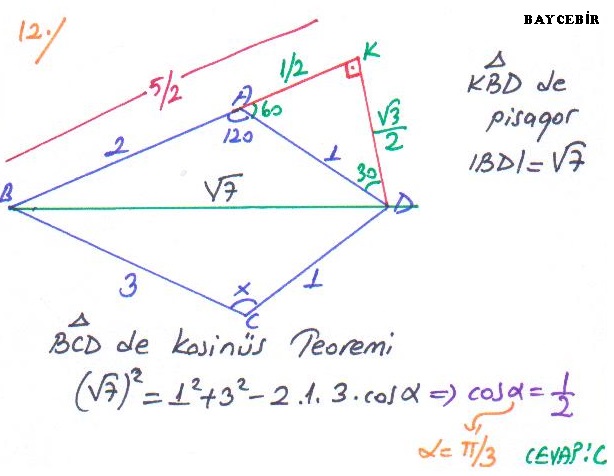 12./
BAYCEBİR
5/2
1/2
K
A
60
120
2
1
√3/2
30
B
√7
D
3
x
1
C
KBD de
pisagor
|BD| = √7
BCD de kosinüs Teoremi
(√7)² = 1² + 3² - 2.1.3.cosα => cosα = 1/2
α = π/3 CEVAP:C